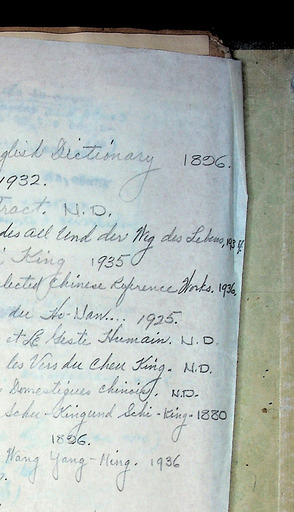 glish Dictionary 1896.
1932.
Tract. N.D.
des all Und der Weg des Lebens, 193
King 1935
lected Chinese Reference Works. 1936,
du Ho-Nan... 1925.
et Le Geste Humain. N.D.
les Vers du Cheu King. N.D.
Domestiques chinois). N.D.
Schu-King und Schi-King-1880
1896.
Wang Yang-Ming. 1936